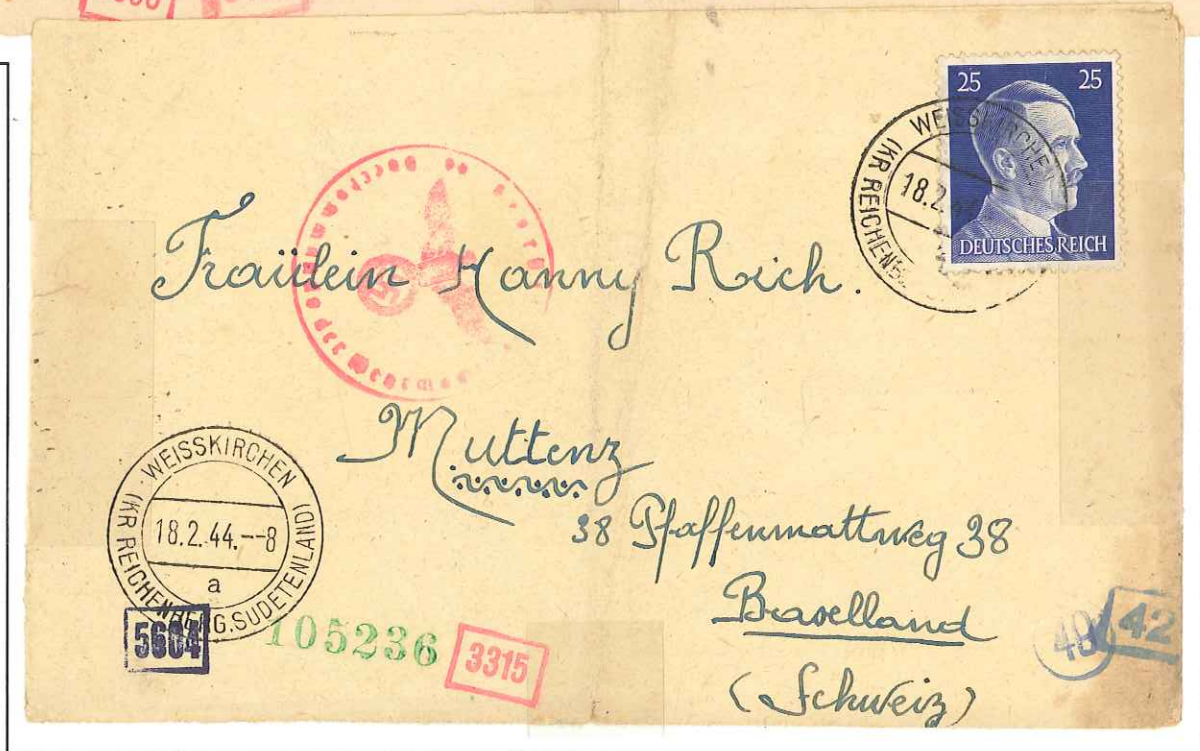 25 25
DEUTSCHES REICH
WEISSKIRCHEN
(KR REICHENB
18.2.44
Oberkommando der Wehrmacht
Fraülein Hanny Rich.
Muttenz
38 Pfaffenmattweg 38
Baselland
(Schweiz)
WEISSKIRCHEN
(KR REICHENBERG.SUDETENLAND)
18.2.44.--8
a
5604
105236
3315
48
42